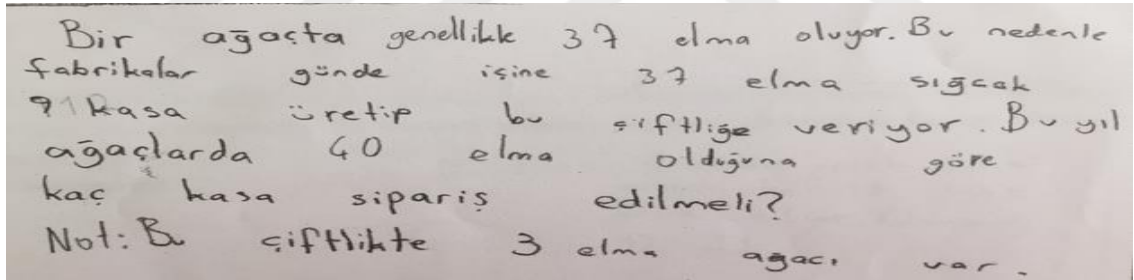 Bir ağaçta genellikle 37 elma oluyor. Bu nedenle
fabrikalar günde içine 37 elma sığcak
91 kasa üretip bu çiftliğe veriyor. Bu yıl
ağaçlarda 40 elma olduğuna göre
kaç kasa sipariş edilmeli?
Not: Bu çiftlikte 3 elma ağacı var.